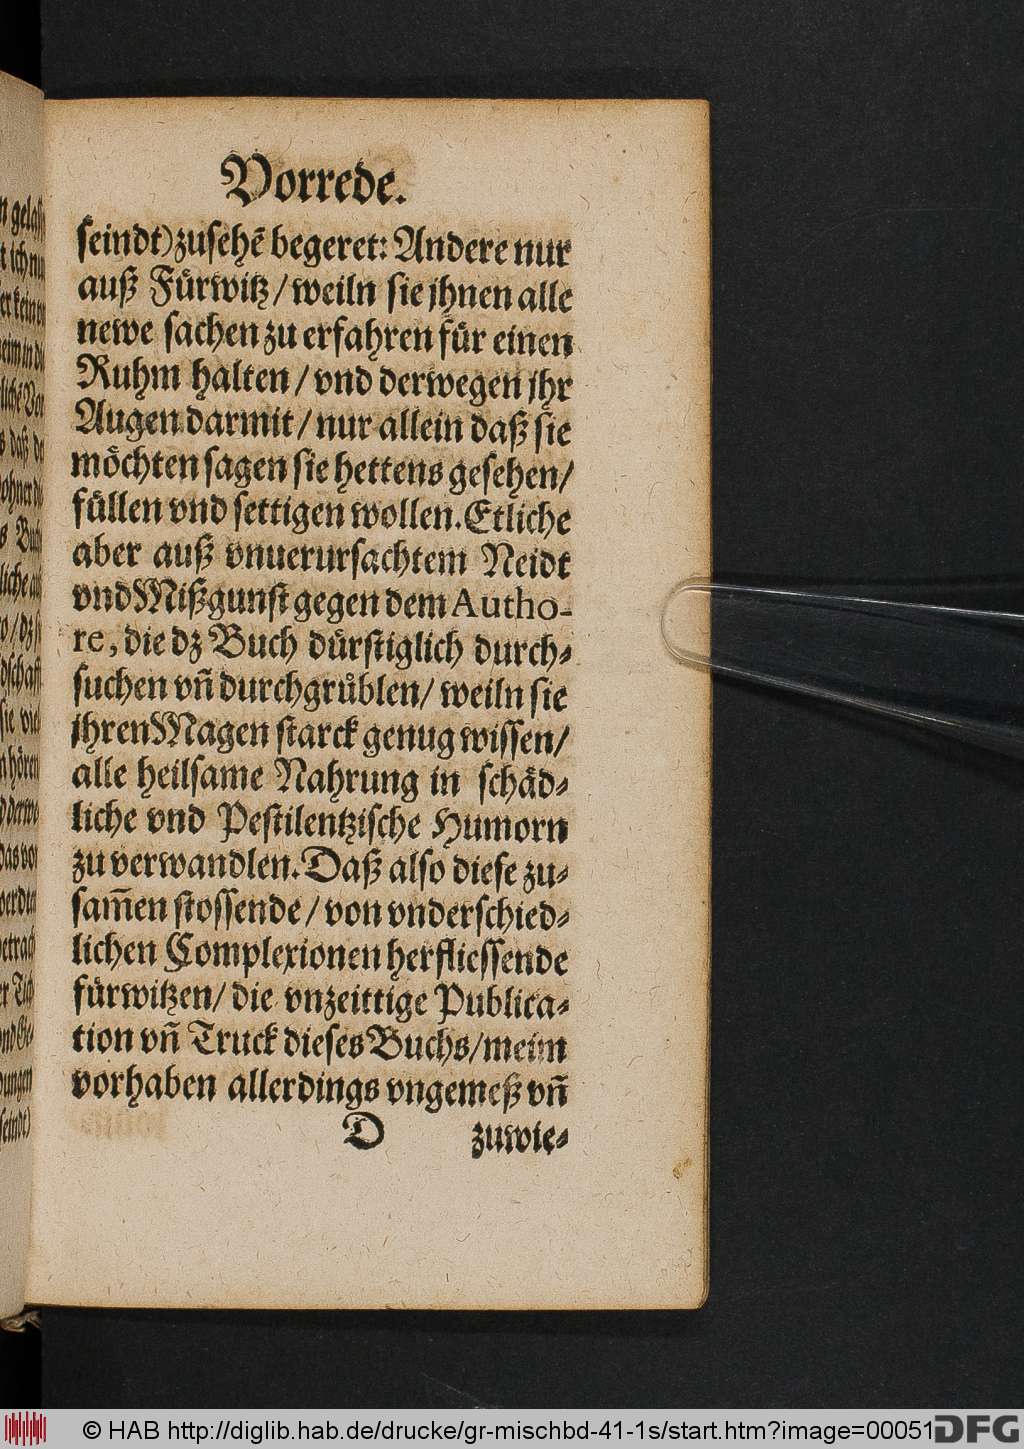 Vorrede.
seindt) zusehẽ begeret: Andere nur
auß Fürwitz / weiln sie jhnen alle
newe sachen zu erfahren für einen
Ruhm halten / vnd derwegen jhr
Augen darmit / nur allein daß sie
möchten sagen sie hettens gesehen /
füllen vnd settigen wollen. Etliche
aber auß vnuerursachtem Neidt
vnd Mißgunst gegen dem Autho-
re, die dz Buch dürstiglich durch-
suchen vñ durchgrüblen / weiln sie
jhren Magen starck genug wissen /
alle heilsame Nahrung in schäd-
liche vnd Pestilentzische Humorn
zu verwandlen. Daß also diese zu-
sam̃en stossende / von vnderschied-
lichen Complexionen herfliessende
fürwitzen / die vnzeittige Publica-
tion vñ Truck dieses Buchs / meim
vorhaben allerdings vngemeß vñ
D zuwie-
© HAB http://diglib.hab.de/drucke/gr-mischbd-41-1s/start.htm?image=00051
DFG